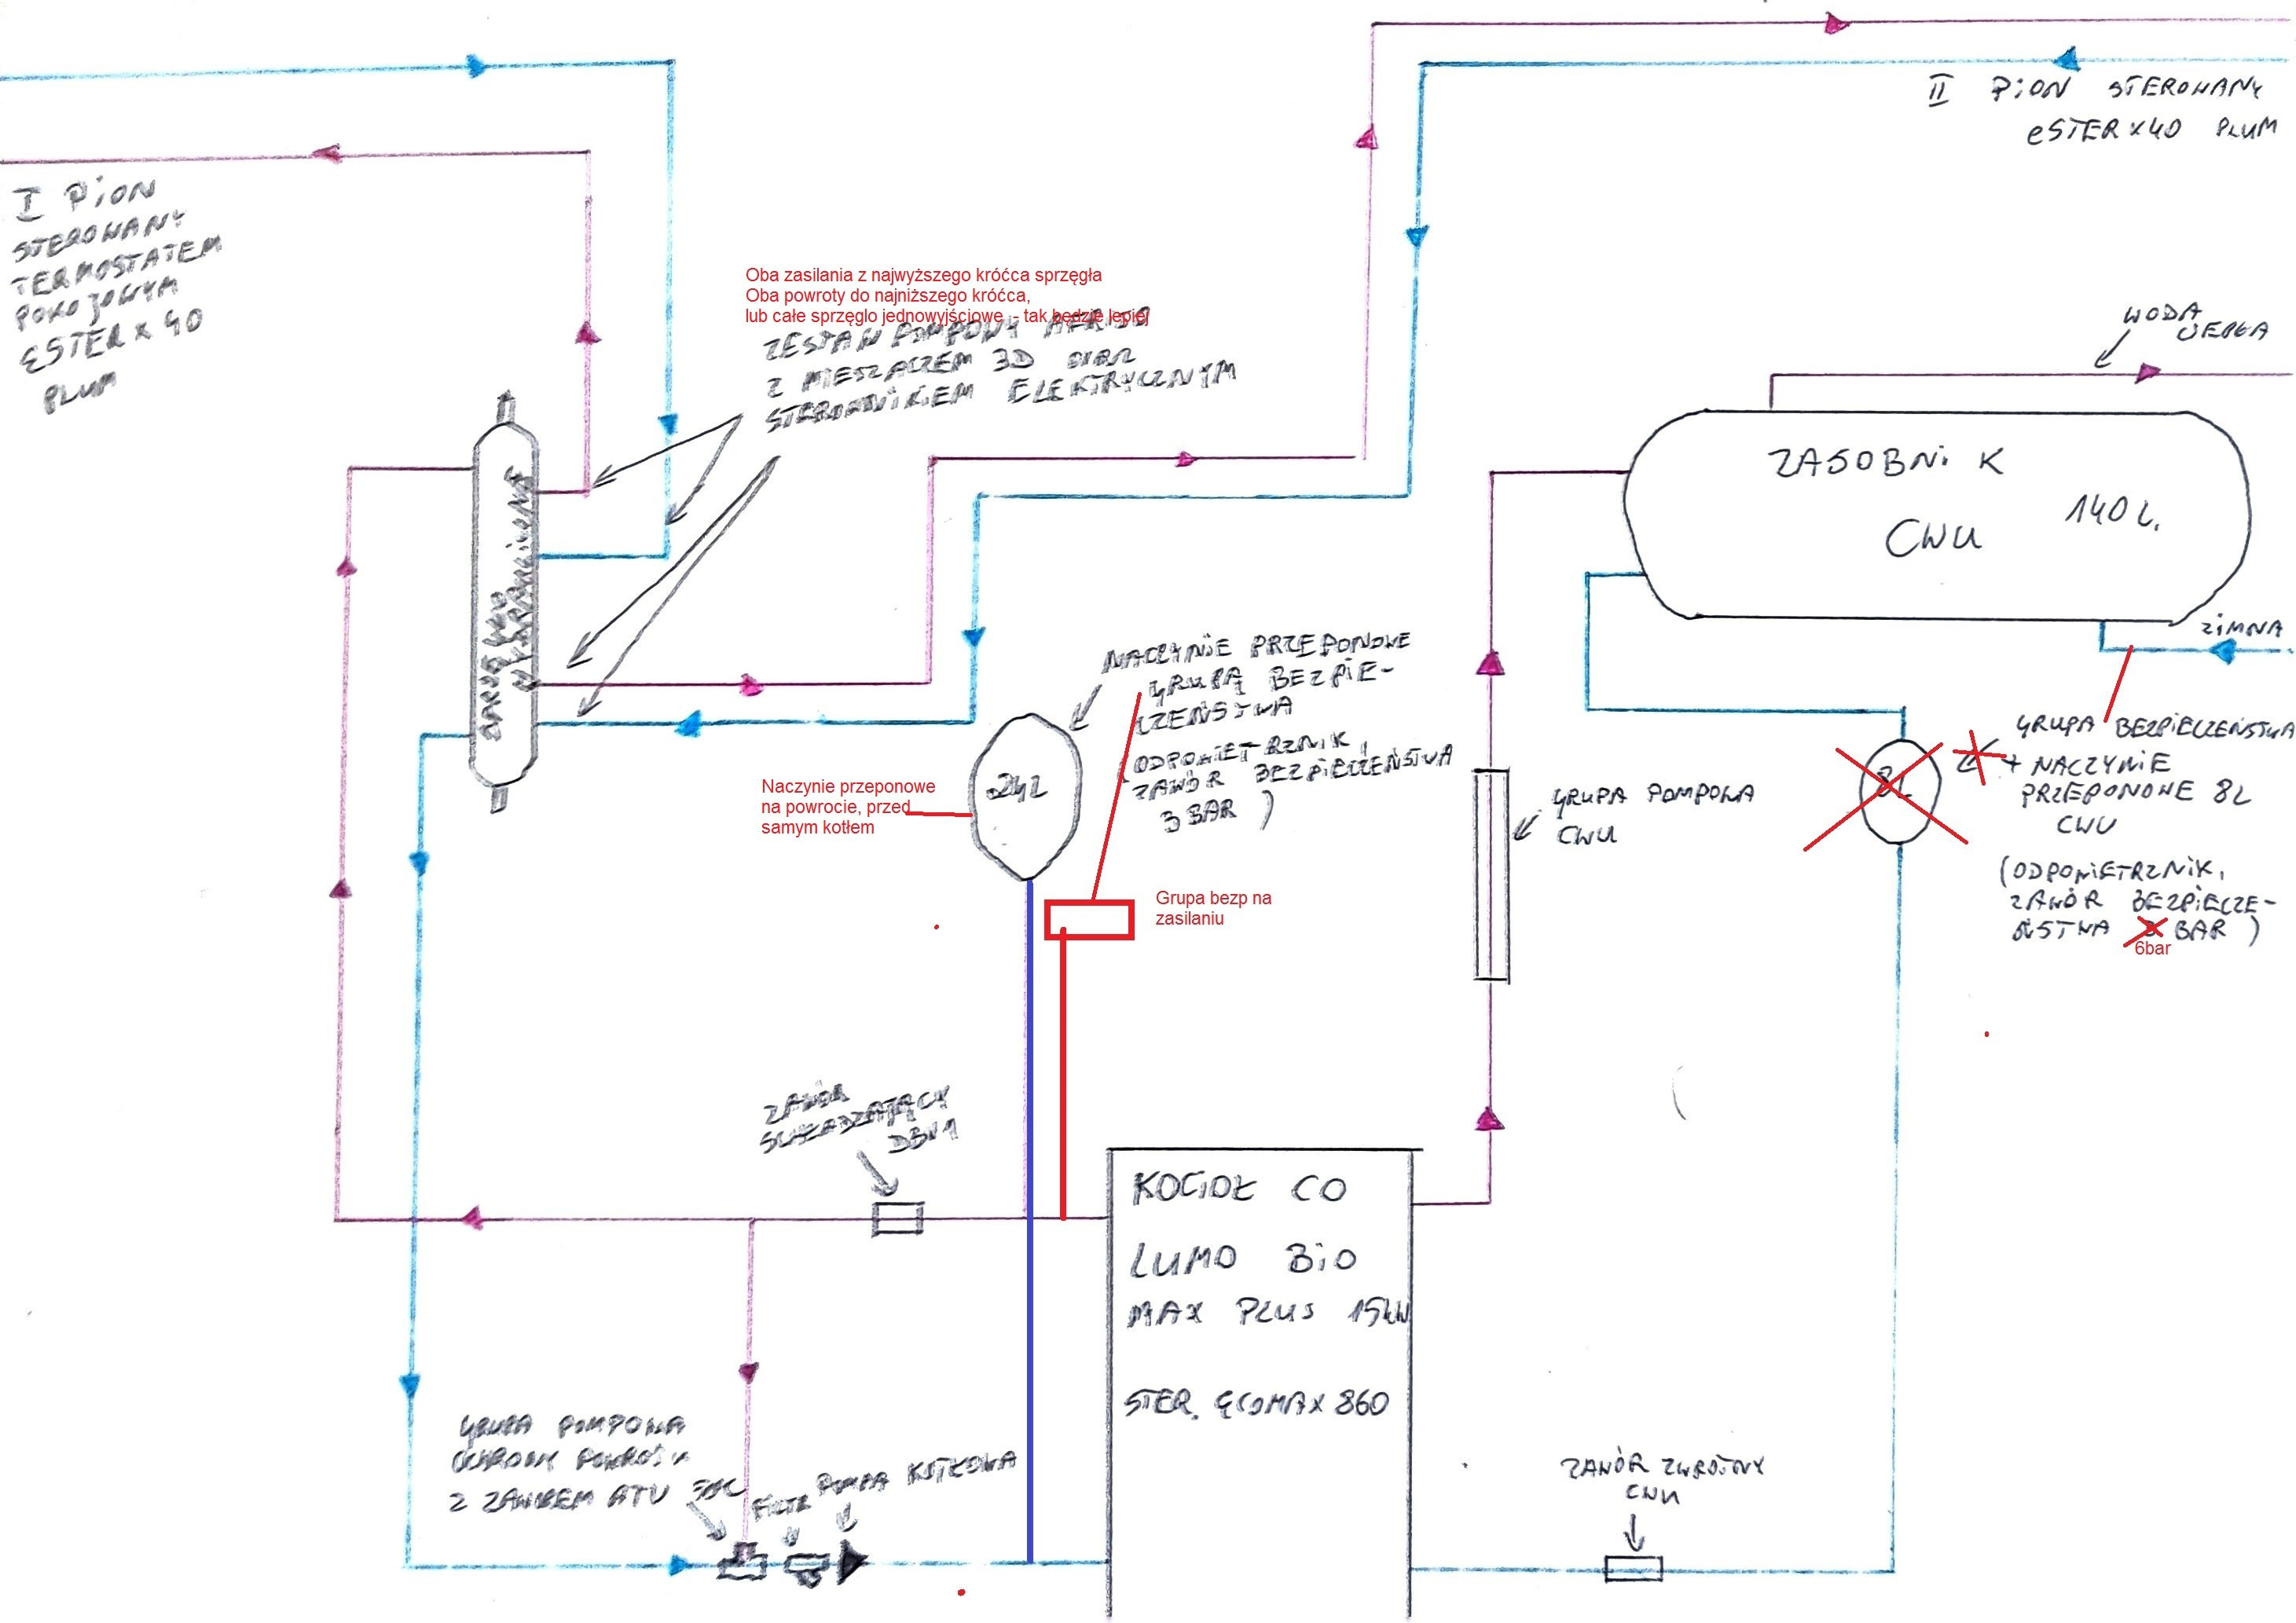 II PION STEROWANY
eSTER x40 PLUM
I PION
STEROWANY
TERMOSTATEM
POKOJOWYM
eSTER x 40
PLUM
Oba zasilania z najwyższego króćca sprzęgła
Oba powroty do najniższego króćca,
lub całe sprzęglo jednowyjściowe - tak będzie lepiej
ZESTAW POMPOWY AFRISO
Z MIESZACZEM 3D ORAZ
STEROWNIKIEM ELEKTRYCZNYM
WODA
CIEPŁA
ZASOBNIK
140 L.
CWU
ZIMNA
NACZYNIE PRZEPONOWE
GRUPĄ BEZPIE-
CZEŃSTWA
(ODPOWIETRZNIK,
ZAWÓR BEZPIECZEŃSTWA
3 BAR )
24L
Naczynie przeponowe
na powrocie, przed
samym kotłem
Grupa bezp na
zasilaniu
GRUPA POMPOWA
CWU
8L
GRUPA BEZPIECZEŃSTWA
+ NACZYNIE
PRZEPONOWE 8L
CWU
(ODPOWIETRZNIK,
ZAWÓR BEZPIECZE-
ŃSTWA 3 BAR )
6bar
ZAWÓR
DBV1
KOCIOŁ CO
LUMO BIO
MAX PLUS 15kW
STER. ECOMAX 860
GRUPA POMPOWA
OCHRONY POWROTU
Z ZAWOREM ATV
FILTR
POMPA KOTŁOWA
ZAWÓR ZWROTNY
CWU